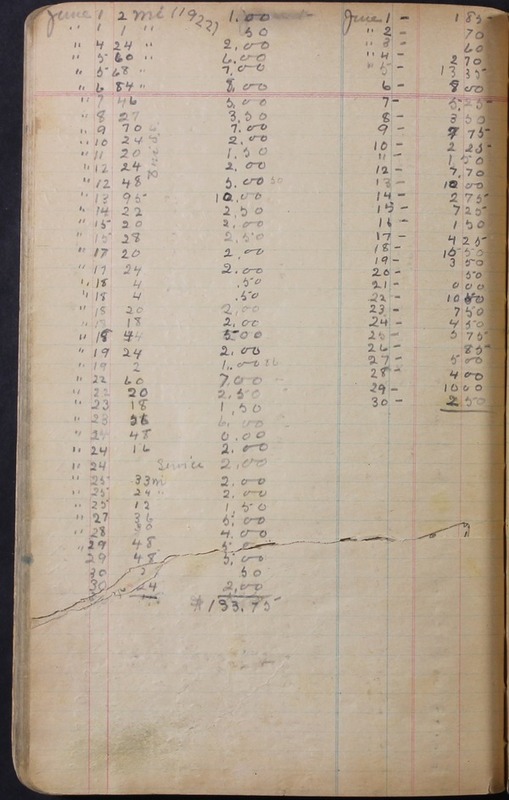 June 1 2 mi (1922) 1.00
" 1 1 " 50
" 4 24 " 2.00
" 5 60 " 6.00
" 5 68 " 7.00
" 6 84 " 8.00
" 7 46 5.00
" 8 27 3.50
" 9 70 7.00
" 10 24 2.00
" 11 20 1.50
" 12 24 2.00
" 12 48 5.00 50
" 13 95 10.00
" 14 22 2.50
" 15 20 2.00
" 15 28 2.50
" 17 20 2.00
" 17 24 2.00
" 18 4 .50
" 18 4 .50
" 18 20 2.00
" 18 18 2.00
" 18 44 5.00
" 19 24 2.00
" 19 2 1.00
" 22 60 7.00
" 22 20 2.50
" 23 18 1.50
" 23 6.00
" 24 48 0.00
" 24 16 2.00
" 24 Service 2.00
" 25 33mi 2.00
" 25 24 " 2.00
" 25 12 1.50
" 27 36 5.00
" 28 30 4.00
" 29 48 5.00
29 48 5.00
30 2 50
30 24 2.00
$133.75
June 1 - 1 85
" 2 - 70
" 3 - 60
" 4 - 2 70
" 5 - 13 35
6 - 8 00
7 - 5.25
8 - 3 50
9 - 7 75
10 - 2 25
" 1 50
12 - 7.70
13 - 10 00
14 - 2 75
15 - 7 25
16 - 1 50
17 - 4 25
18 - 10 50
19 - 3 50
20 - 50
21 - 0 00
22 - 10 50
23 - 7 50
24 - 4 50
25 - 5 75
26 - 85
27 - 5 00
28 - 4 00
29 - 10 00
30 - 2 50